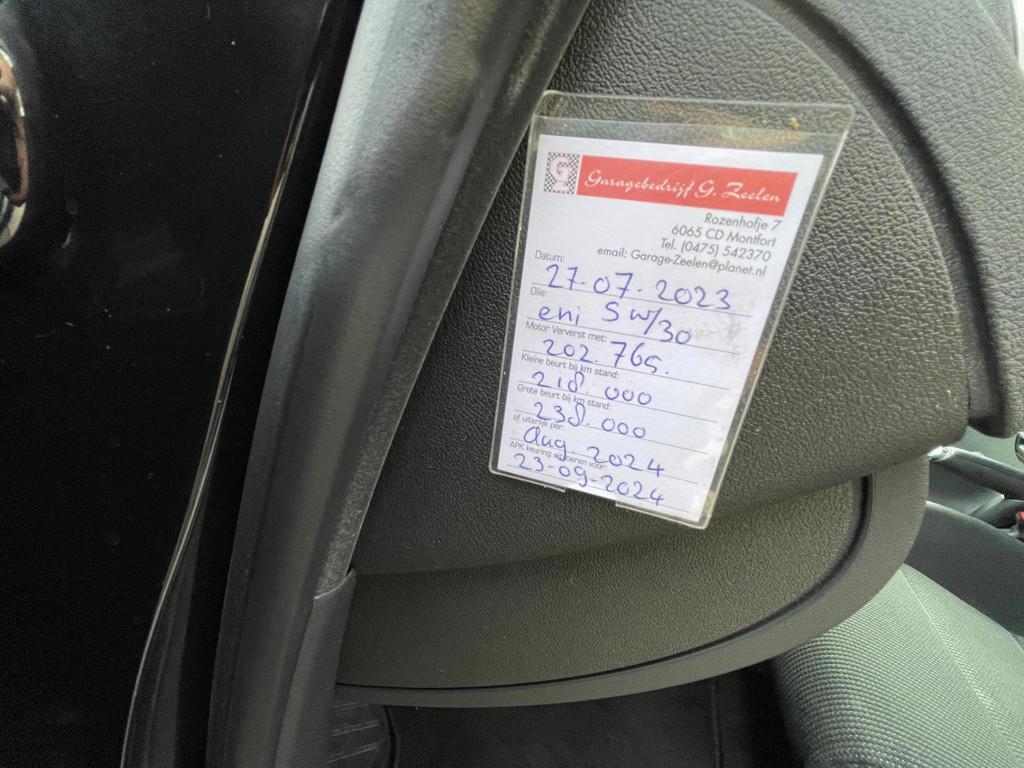 Garagebedrijf G. Zeelen
Rozenhofje 7
6065 CD Montfort
Tel. (0475) 542370
email: Garage-Zeelen@planet.nl
Datum:
27-07-2023
Olie:
eni 5w/30
Motor Ververst met:
202.765.
Kleine beurt bij km stand:
218.000
Grote beurt bij km stand:
238.000
of uiterlijk per:
aug 2024
APK keuring uitvoeren voor:
23-09-2024